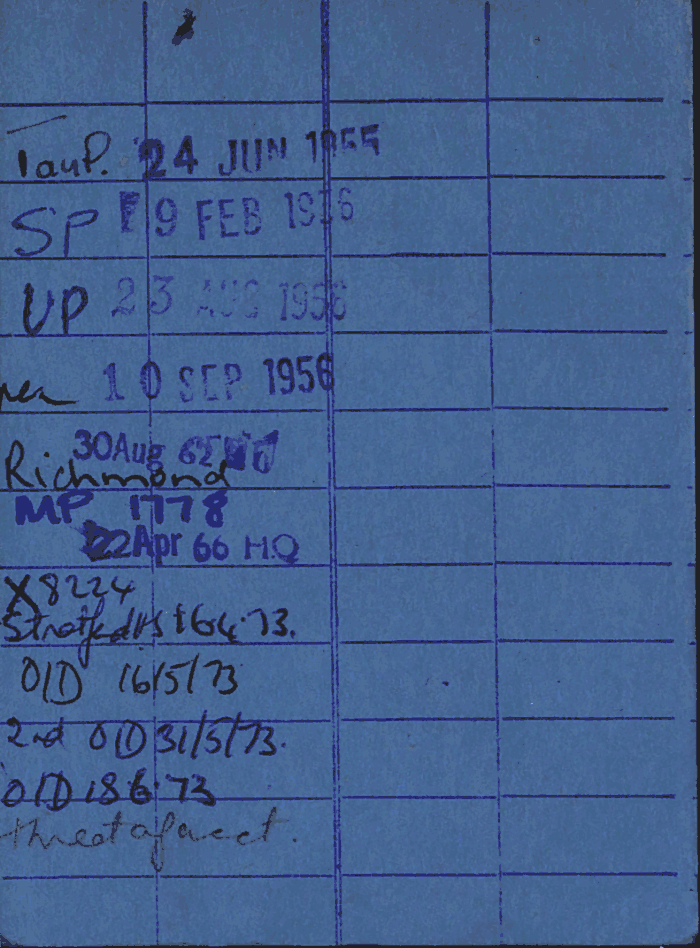 TauP. 24 JUN 1955
SP 9 FEB 1956
UP 23 AUG 1956
10 SEP 1956
30 Aug 62
Richmond
MP 1778
22 Apr 66 H.Q
X8224
Stratford HS 16.4.73.
O/D 16/5/73
2nd O/D 31/5/73.
O/D 18.6.73
threat of acct.